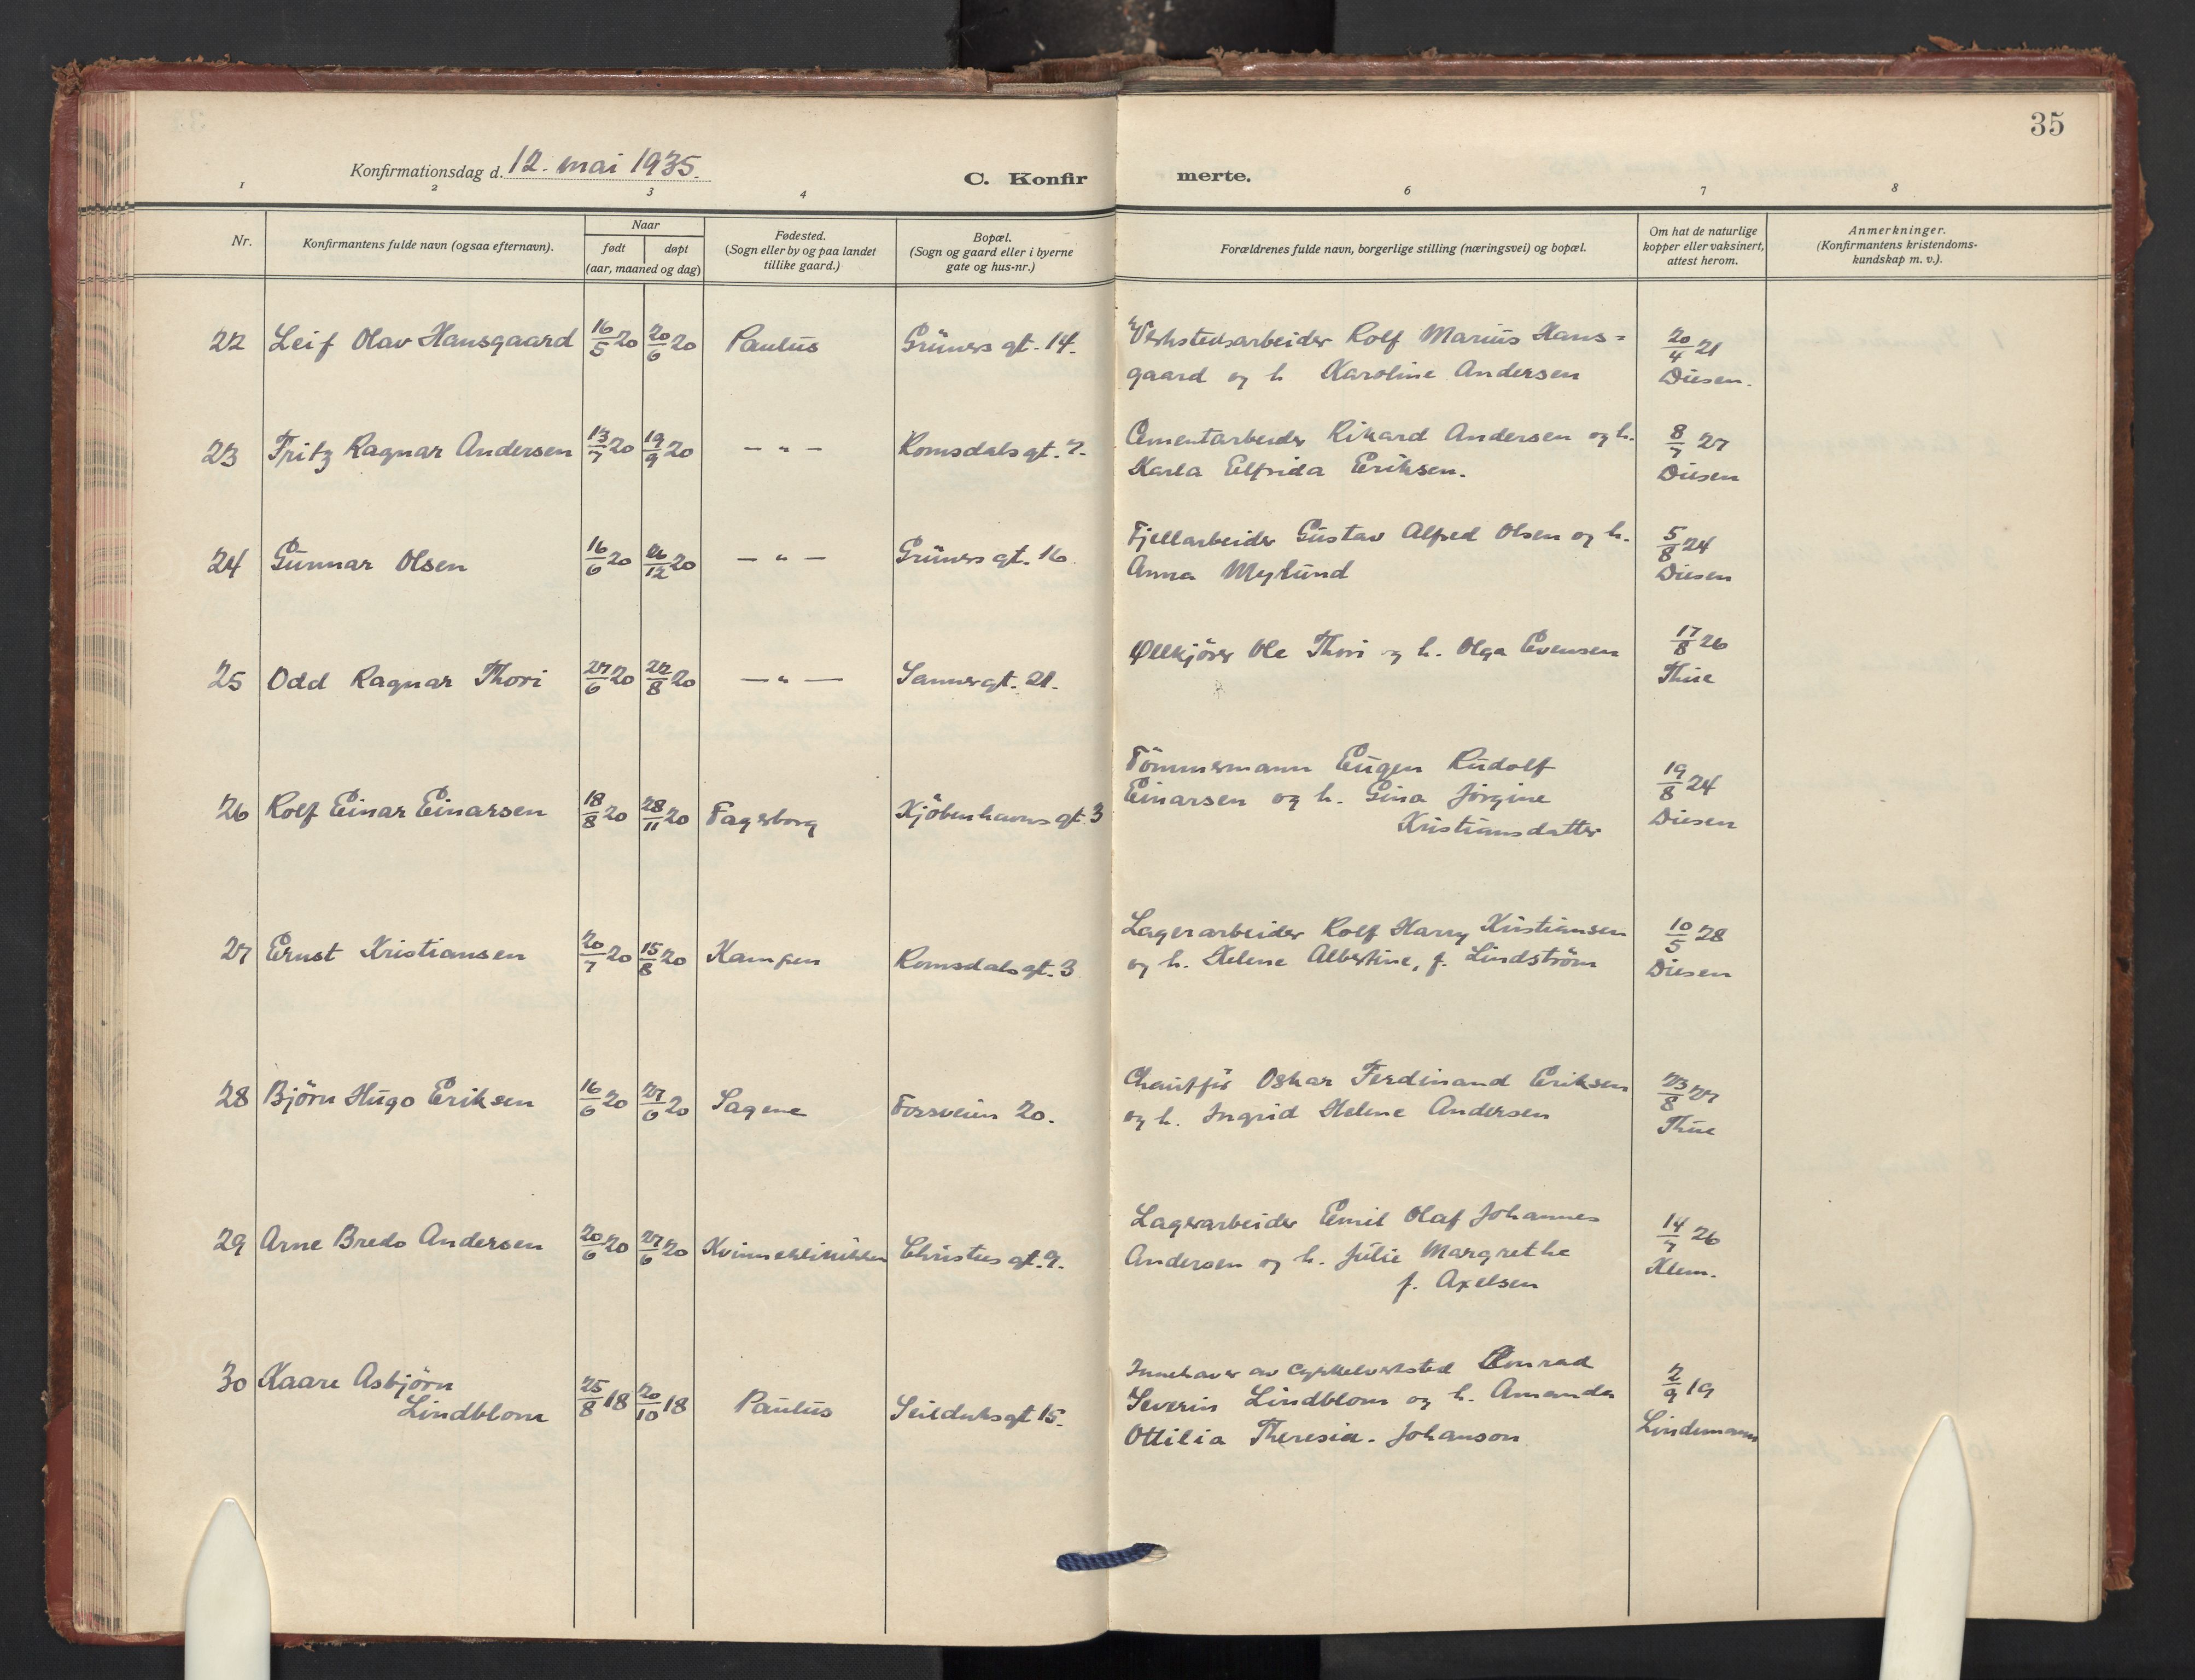 35
Konfirmationsdag d. 12. mai 1935.
C. Konfir merte.
1 2 3 4 6 7 8
Nr.
Konfirmantens fulde navn (ogsaa efternavn).
Naar
født døpt
(aar, maaned og dag)
Fødested.
(Sogn eller by og paa landet
tillike gaard.)
Bopæl.
(Sogn og gaard eller i byerne
gate og hus-nr.)
Forældrenes fulde navn, borgerlige stilling (næringsvei) og bopæl.
Om hat de naturlige
kopper eller vaksinert,
attest herom.
Anmerkninger.
(Konfirmantens kristendoms-
kundskap m. v.).
22 Leif Olav Hansgaard 16/5 20 20/6 20 Paulus Grüners gt. 14.
Verkstedsarbeider Rolf Marius Hans=
gaard og h. Karoline Andersen
20/4 21
Diesen.
23 Fritz Ragnar Andersen 13/7 20 19/9 20 — " — Romsdalsgt. 7.
Cementarbeider Rikard Andersen og h.
Karla Elfrida Eriksen.
8/7 27
Diesen
24 Gunnar Olsen 16/6 20 26/12 20 — " — Grüners gt. 16
Fjellarbeider Gustav Alfred Olsen og h.
Anna Mylund
5/8 24
Diesen
25 Odd Ragnar Thori 27/6 20 22/8 20 — " — Sannergt. 21.
Ølkjörer Ole Thori og h. Olga Evensen
17/8 26
Thue
26 Rolf Einar Einarsen 18/8 20 28/11 20 Fagerborg Kjöbenhavnsgt. 3
Tömmermann Eugen Rudolf
Einarsen og h. Gina Jörgine
Kristiansdatter
19/8 24
Diesen
27 Ernst Kristiansen 20/7 20 15/8 20 Kampen Romsdalsgt. 3
Lagerarbeider Rolf Harry Kristiansen
og h. Helene Albertine, f. Lindström
10/5 28
Diesen
28 Björn Hugo Eriksen 16/6 20 27/6 20 Sagene Fossveien 20.
Chauffør Oskar Ferdinand Eriksen
og h. Ingrid Helene Andersen
23/8 27
Thue
29 Arne Bredo Andersen 20/6 20 27/6 20 Kvinneklinikken Christies gt. 9.
Lagerarbeider Emil Olaf Johannes
Andersen og h. Julie Margrethe
f. Axelsen
14/7 26
Klem.
30 Kaare Asbjörn
Lindblom 25/8 18 20/10 18 Paulus Seilduksgt 15.
Innehaver av Cykkelverksted Conrad
Severin Lindblom og h. Amanda
Ottilia Theresia. Johanson
2/9 19
Lindemann